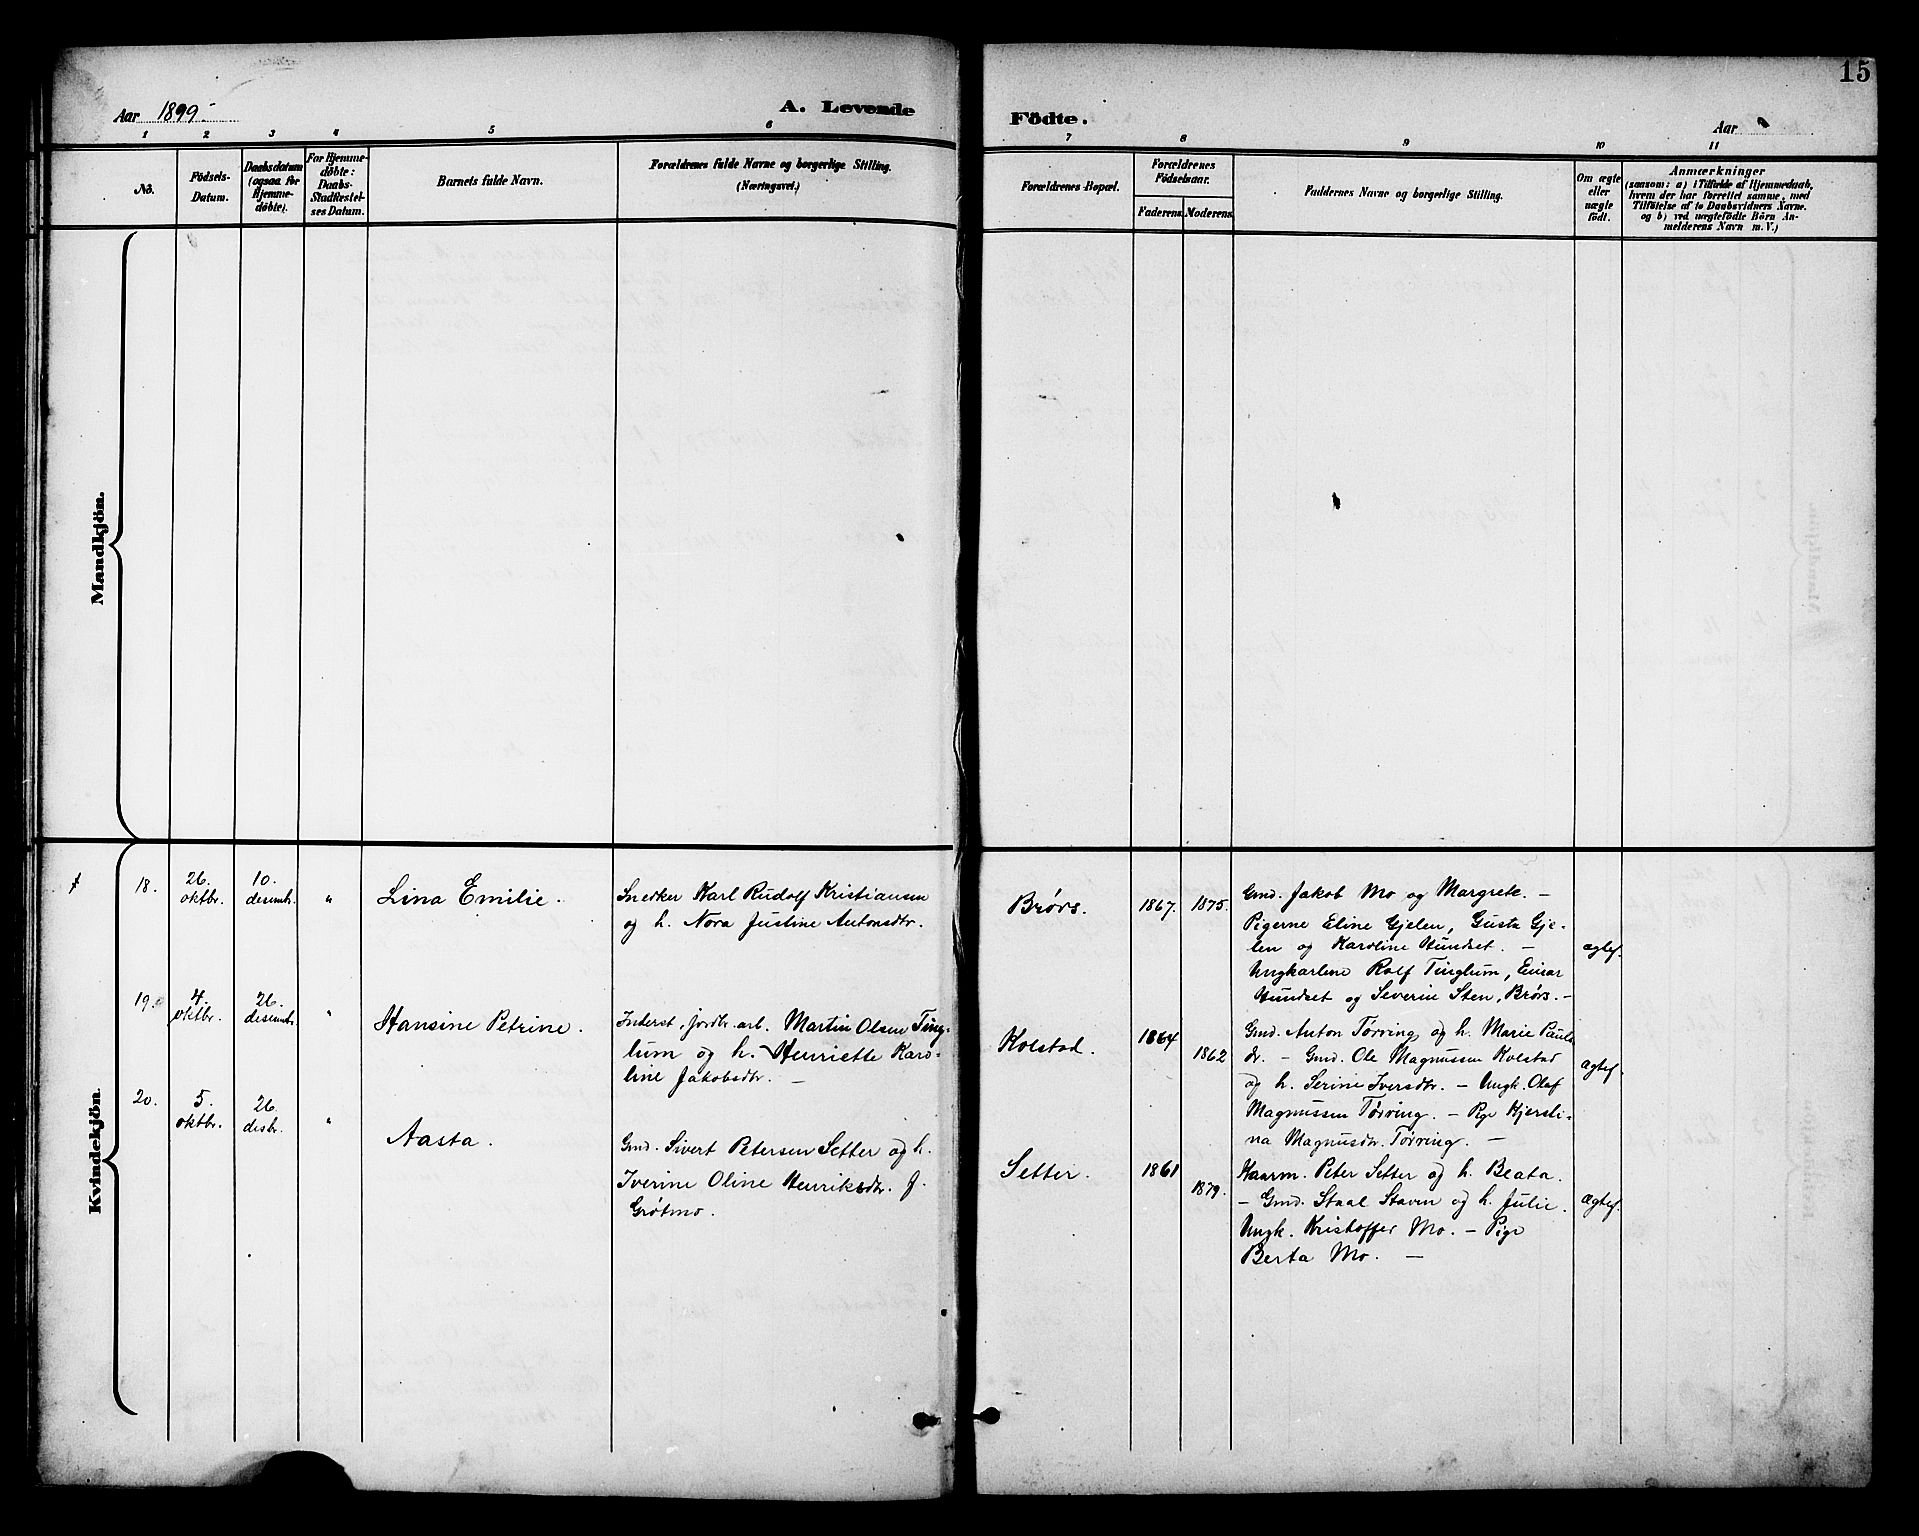 15
Aar 1899.
A. Levende
Födte.
Aar
1 2 3 4 5 6 7 8 9 10 11
No.
Födsels-
Datum.
Daabsdatum
(ogsaa for
Hjemme-
döbte).
For Hjemme-
döbte:
Daabs-
Stadfæstel-
ses Datum.
Barnets fulde Navn.
Forældrenes fulde Navne og borgerlige Stilling.
(Næringsvei.)
Forældrenes Bopæl.
Forældrenes
Födselsaar.
Faderens.
Moderens.
Faddernes Navne og borgerlige Stilling.
Om ægte
eller
uægte
födt.
Anmærkninger
(saasom: a) i Tilfælde af Hjemmedaab,
hvem der har forrettet samme, med
Tilföielse af to Daabsvidners Navne.
og b) ved uægtefödte Börn An-
melderens Navn m. V.)
Mandkjön.
Kvindekjön.
18.
26.
oktbr.
10.
desembr.
"
Lina Emilie.
Snedker Karl Rudolf Kristiansen
og h. Nora Justine Antonsdtr.
Brørs.
1867.
1875.
Gmd. Jakob Mo og Margrete. —
Pigerne Eline Gjelen, Gusta Gje-
len og Karoline Hundset. —
Ungkarlene Rolf Tinglum, Einar
Hundset og Severin Sten, Brørs. —
ægtef.
19.
4.
oktbr.
26.
desembr.
"
Hansine Petrine.
Inderst, jordbr. arb. Martin Olsen Ting-
lum og h. Henriette Karo-
line Jakobsdtr. —
Kolstad.
1864
1862
Gmd. Anton Tørring og h. Marie Pauls-
dr. — Gmd. Ole Magnussen Kolstad
og h. Serine Iversdtr. — Ungk. Olaf
Magnussen Tørring. — Pige Kjersti-
na Magnusdtr. Tørring. —
ægtef.
20.
5.
oktbr.
26.
desbr.
"
Aasta.
Gmd. Sivert Petersen Setter og h.
Iverine Oline Henriksdtr. f.
Grøtmo.
Setter.
1861
1879.
Kaarm. Peter Setter og h. Beata.
— Gmd. Staal Staven og h. Julie.
Ungk. Kristoffer Mo. — Pige
Berta Mo. —
ægtef.